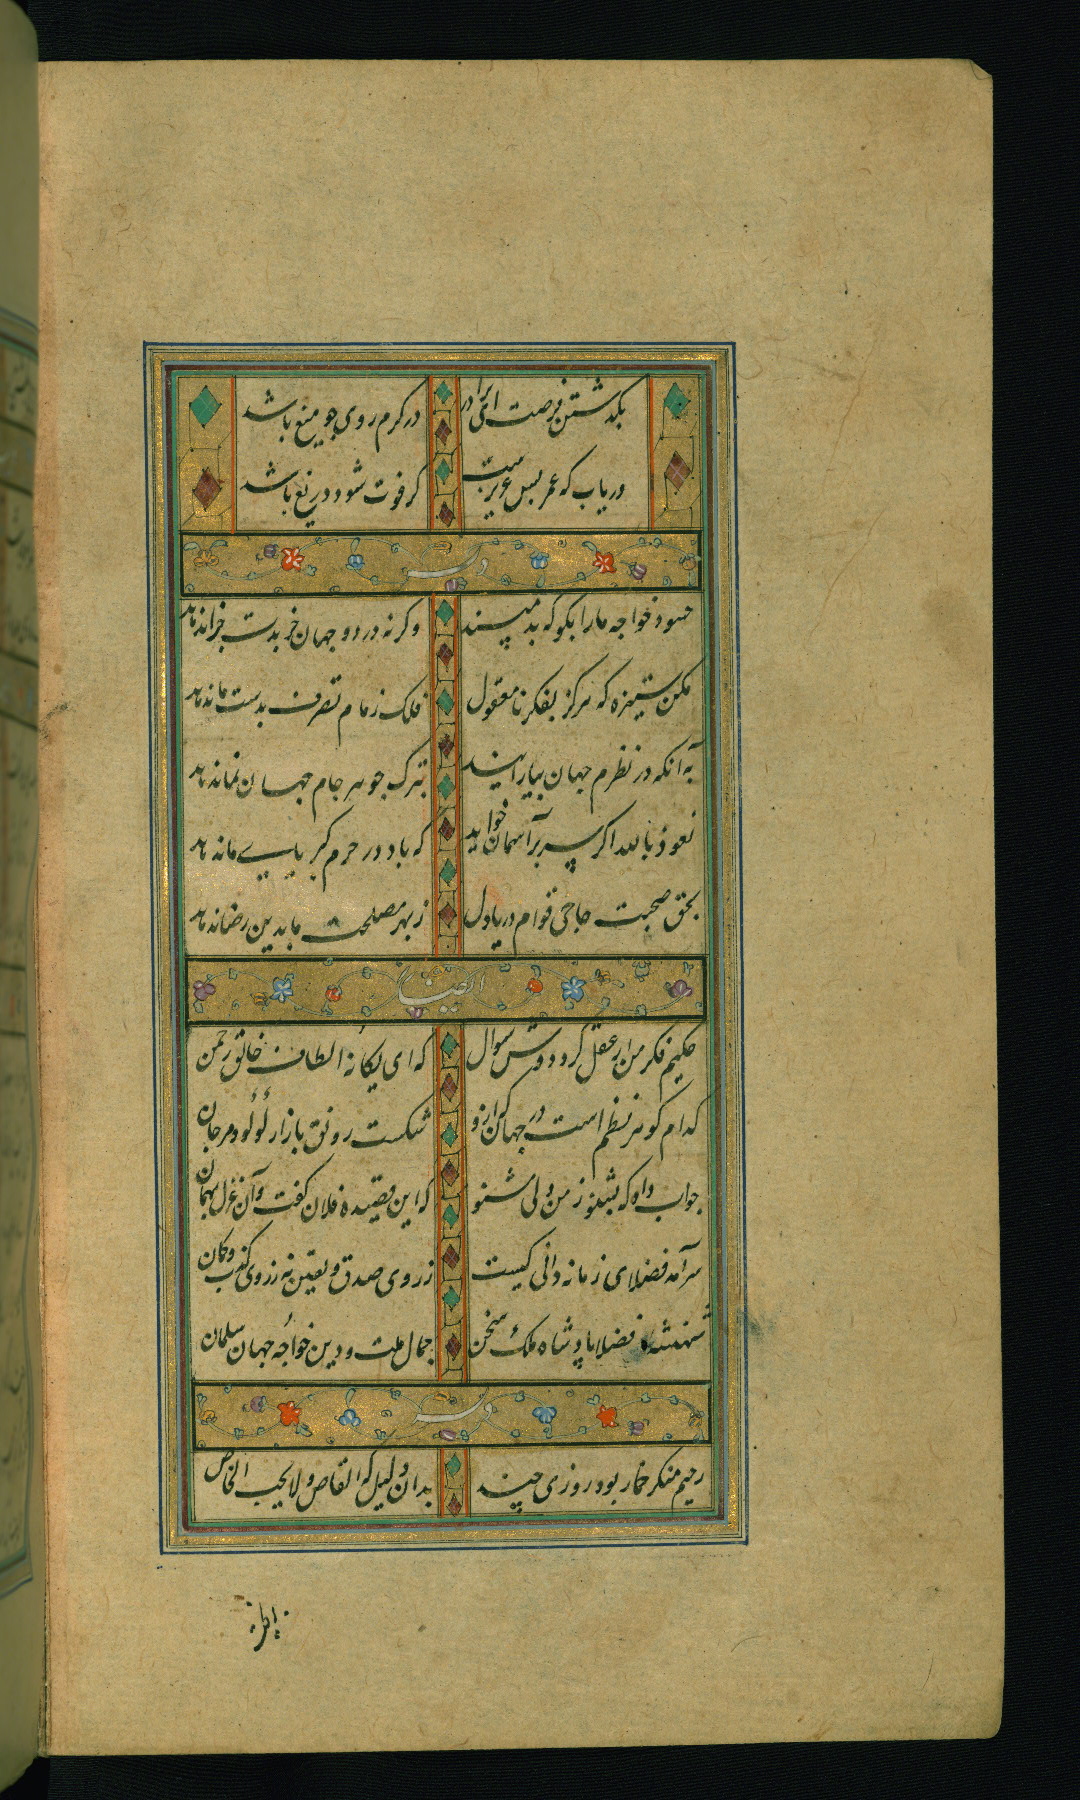 بگذشتن فرصت ای برادر در گرم روی چو میغ باشد
دریاب که عمر بس عزیزست گر فوت شود دریغ باشد
وله
حسود خواجه ما را بگو که بد مپسند وگرنه در دو جهان خز بدت جزا ندهاد
مکن ستیزه که هرگز بفکر نامعقول فلک زمام تصرف بدست ما ندهاد
به آنکه در نظرم جهان بیارایند بترک جوهر جام جهان نما ندهاد
نعوذ بالله اگر سر بر آسمان خواهد که باد در حرم کبریایی ما ندهاد
بحق صحبت حاجی قوام دریادل ز بهر مصلحت ما بدین رضا ندهاد
ایضا
حکیم فکر من از عقل کرد دوش سوال که ای یگانه الطاف خالق رحمن
کدام گوهر نظم است در جهان که ازو شکست رونق بازار لؤلؤ و مرجان
جواب داد که بشنو ز من ولی مشنو که این قصیده فلان گفت و آن غزل بهمان
سرآمد فضلای زمانه دانی کیست ز روی صدق و یقین نه ز روی کذب و گمان
شهنشه فضلا پادشاه ملک سخن جمال ملت و دین خواجه جهان سلمان
وله
رحیم منکر خمار بود روزی چند بدان دلیل که القاص لا یحب الخاص